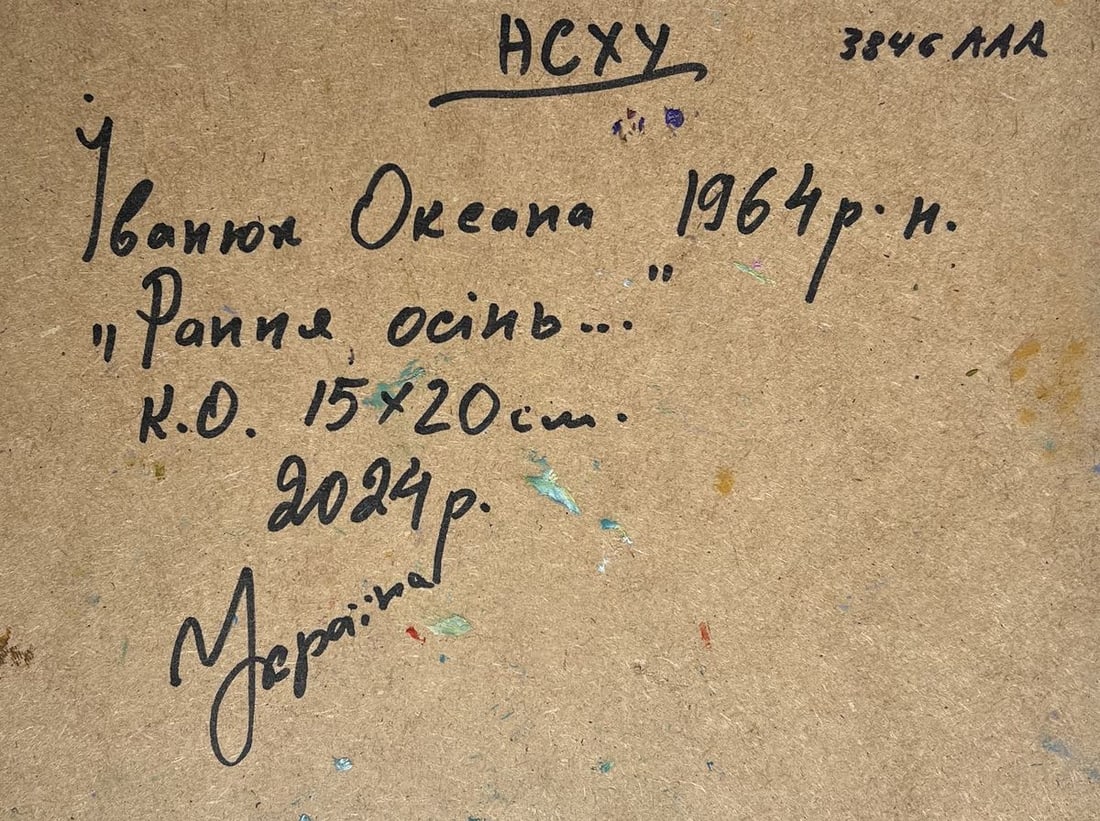 НСХУ
3846 ААА
Іванюк Оксана 1964 р. н.
„Рання осінь..."
К.О. 15х20 см.
2024 р.
Україна